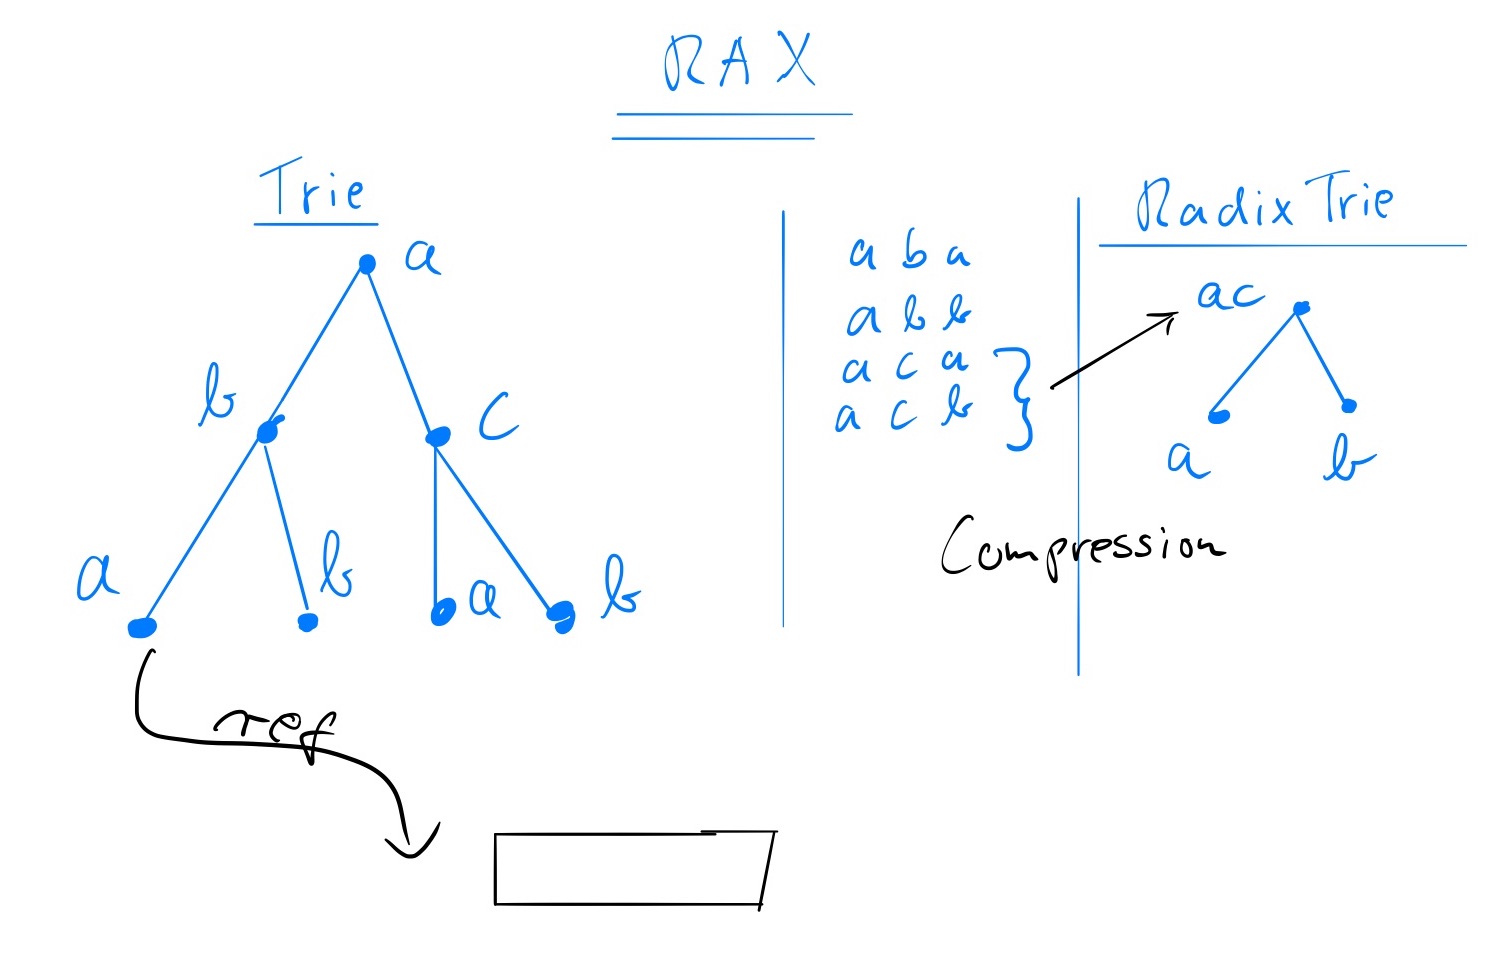 RAX
Trie
a
b
c
a
b
a
b
ref
a b a
a b b
a c a
a c b
Compression
Radix Trie
ac
a
b